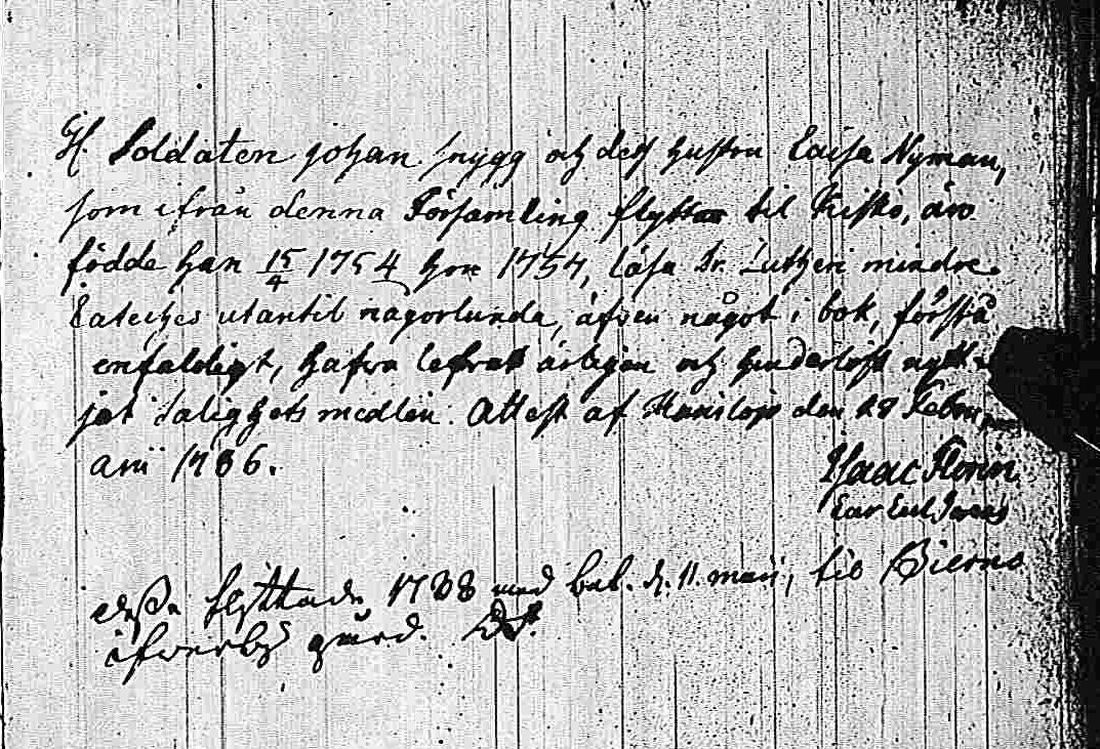 Gl. Soldaten Johan Snygg och dess hustru Caisa Nyman,
som ifrån denna Församling flyttar til Kisko, äro
födde han 15/4 1754 hon 1757, läsa Dr. Lutheri mindre
Cateches utantil någorlunda, äfven något i bok, förstå
enfaldigt, hafva lefvat ärligen och hinderlöst nytt-
jat Salighets medlen. Attest af den 28 Febru
ani 1786.
Isaac Florin
dessa flyttade 1788 med bet. d. 11. maii, til Bierno
gård.